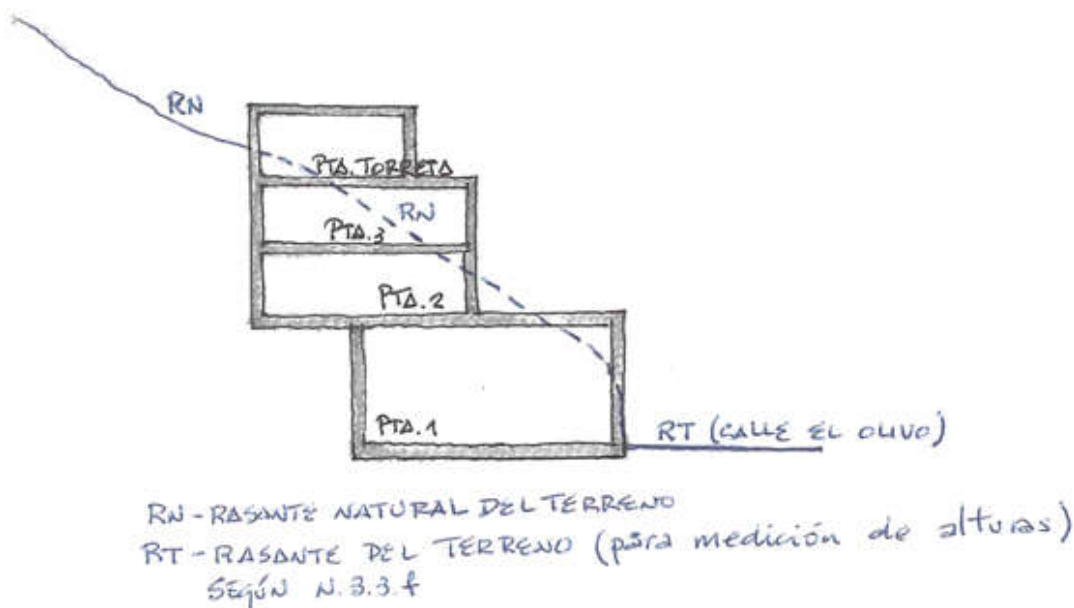 RN
PTA. TORRETA
RN
PTA.3
PTA.2
PTA.1
RT (CALLE EL OLIVO)
RN - RASANTE NATURAL DEL TERRENO
RT - RASANTE DEL TERRENO (para medición de alturas)
SEGÚN N.3.3.f